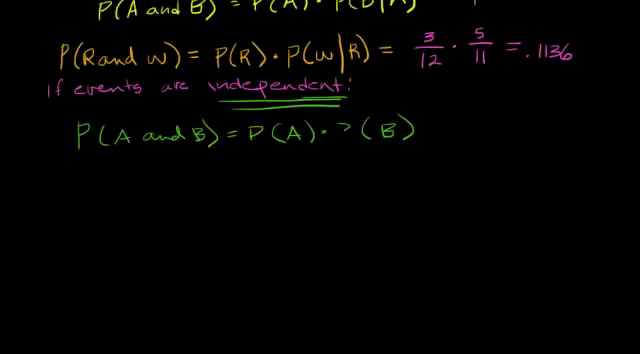 P(A and B) = P(A) · P(B|A)
P(R and W) = P(R) · P(W|R) = 3/12 · 5/11 = .1136
If events are independent:
P(A and B) = P(A) · P(B)